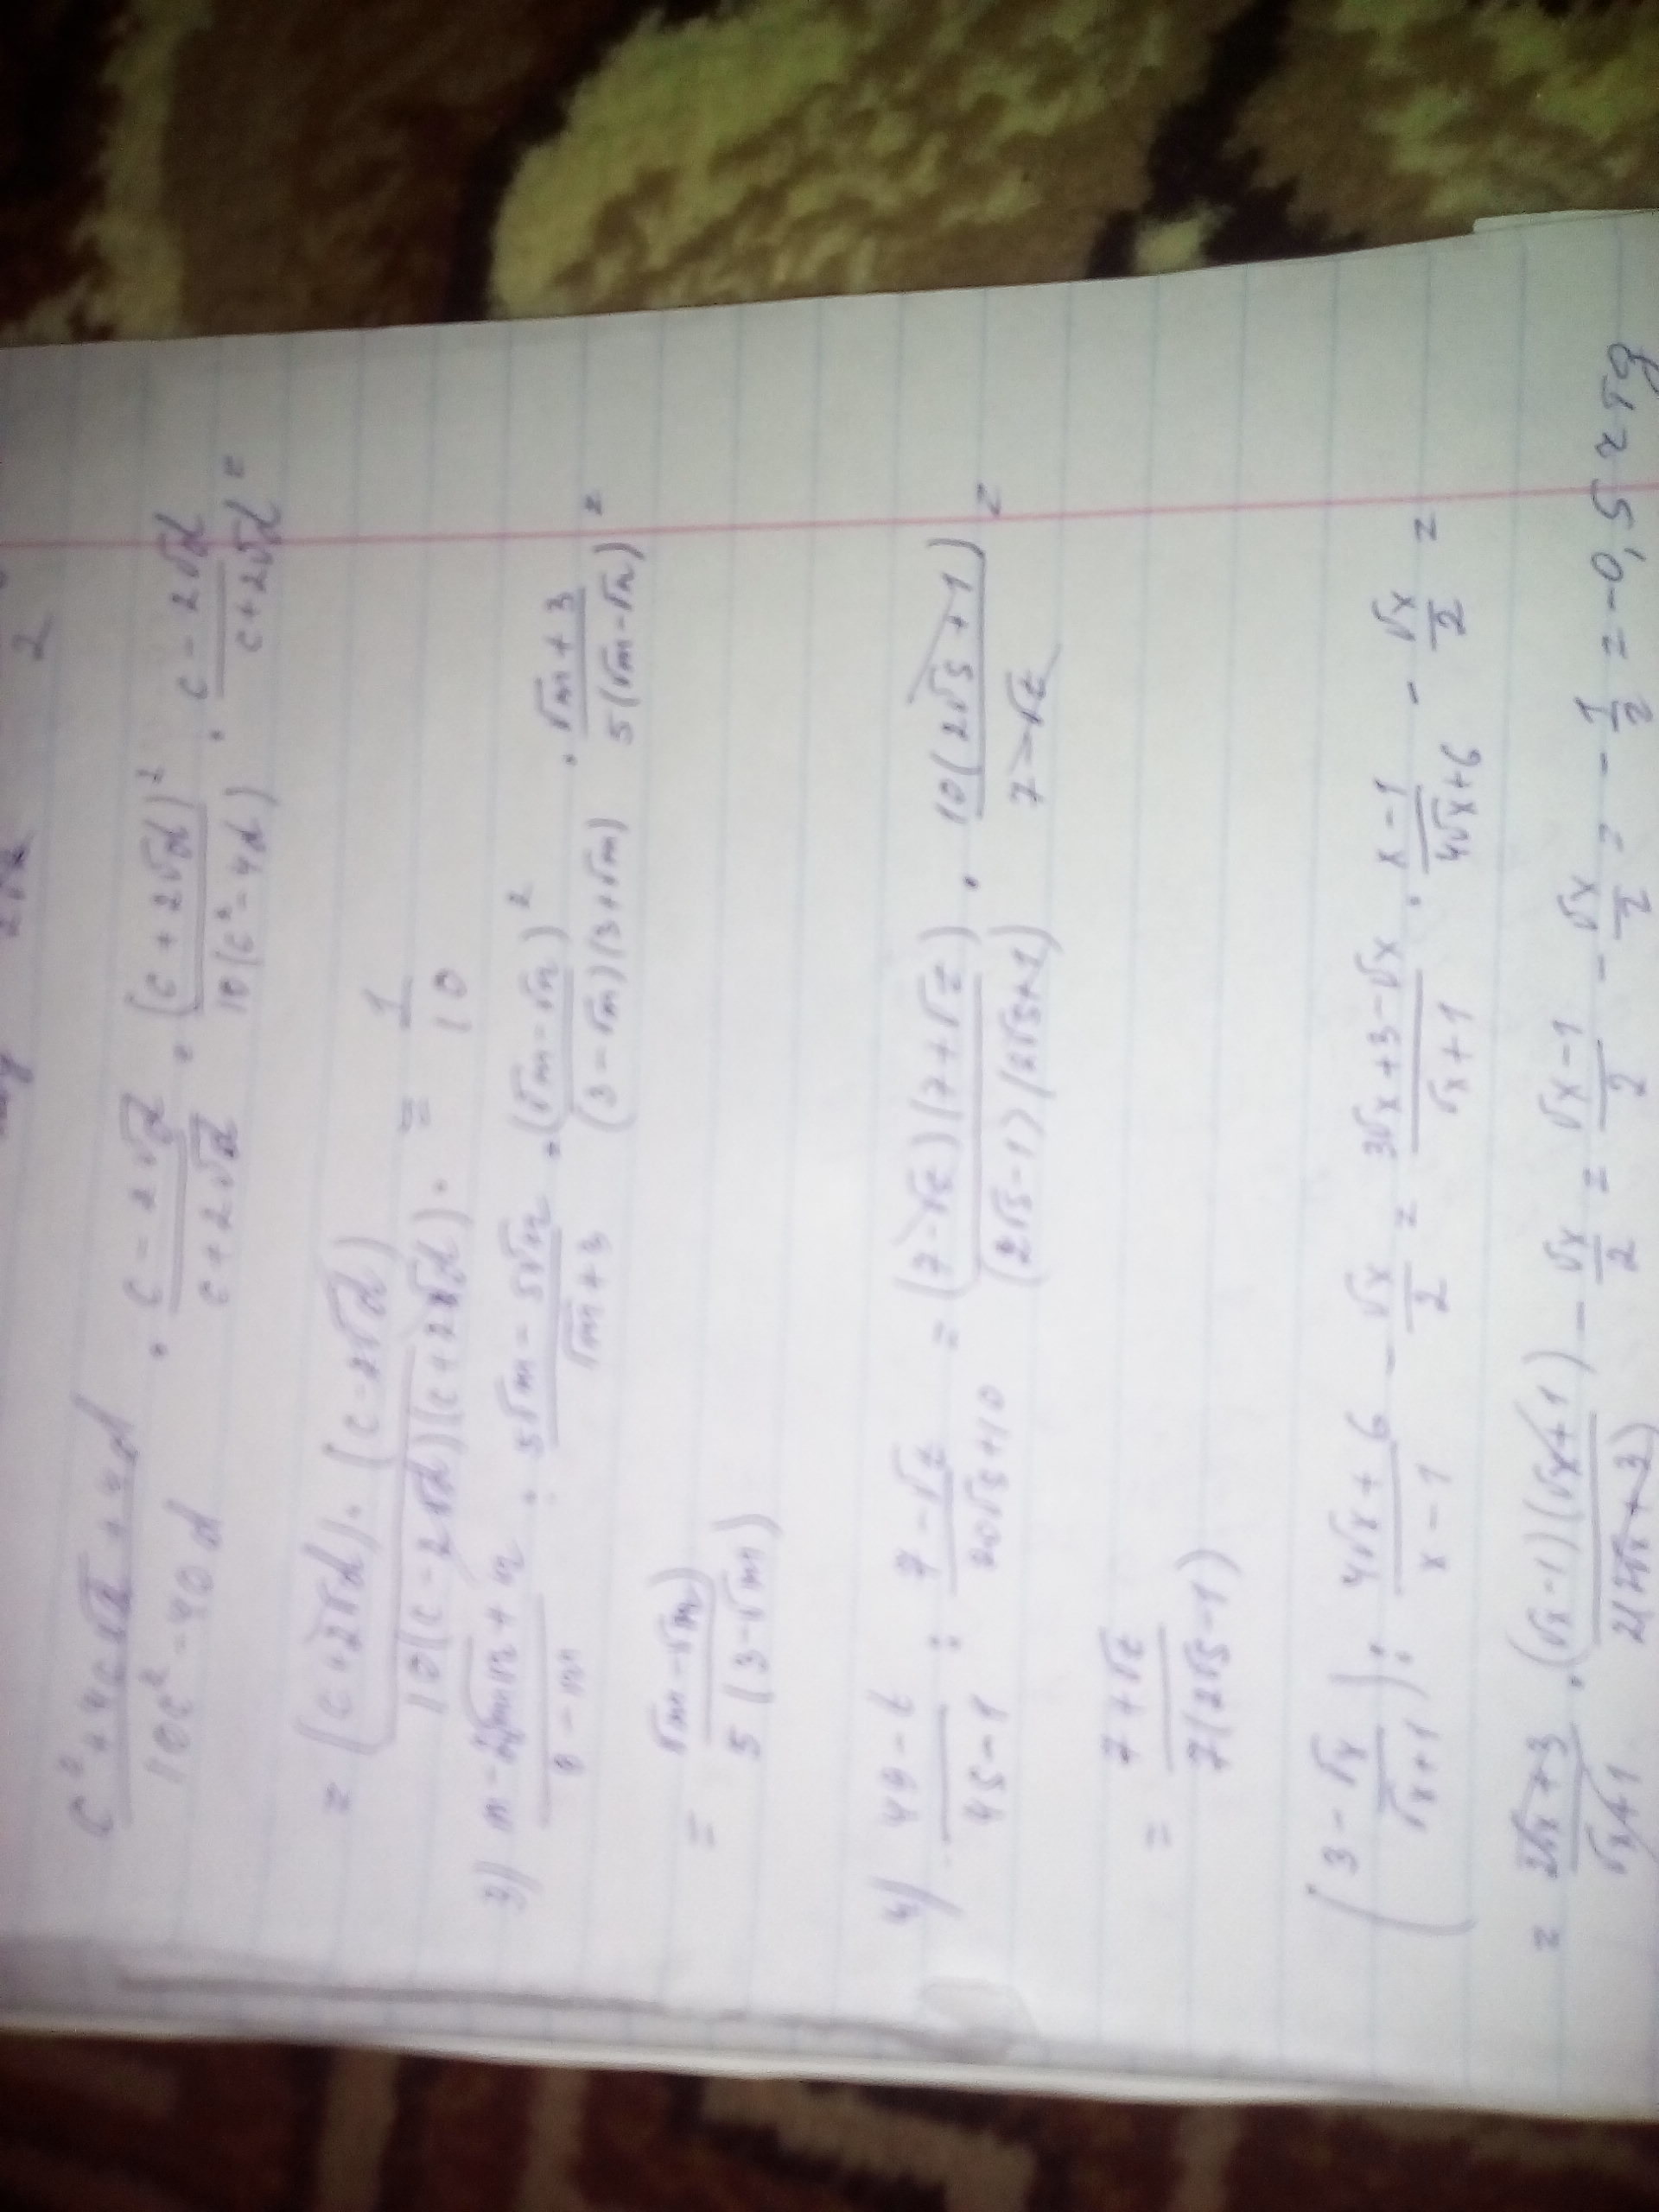 2
(c² + 4c√d + 4d)/(10c² - 40d) · (c - 2√d)/(c + 2√d) = (c + 2√d)²/(10(c² - 4d)) · (c - 2√d)/(c + 2√d) =
= ((c + 2√d) · (c - 2√d))/(10(c - 2√d)(c + 2√d)) · = 1/10
3) (m - 2√m√n + n)/(9 - m) : (5√m - 5√n)/(√m + 3) = (√m - √n)²/((3 - √m)(3 + √m)) · (√m + 3)/(5(√m - √n)) =
= (√m - √n)/(5(3 - √m))
4) (49 - t)/(4s - 1) : (7 - √t)/(20√s + 10) = ((7 - √t)(7 + √t))/((2√s - 1)(2√s + 1)) · (10(2√s + 1))/(7 - √t) =
= (7 + √t)/(7(2√s - 1))
(3 - √x/(√x + 1)) : (4√x + 6)/(x - 1) - √x/2 = (3√x + 3 - √x)/(√x + 1) · (x - 1)/(4√x + 6) - √x/2 =
= (2√x + 3)/(√x + 1) · ((√x - 1)(√x + 1))/(2(2√x + 3)) - √x/2 = (√x - 1)/2 - √x/2 = - 1/2 = - 0,5